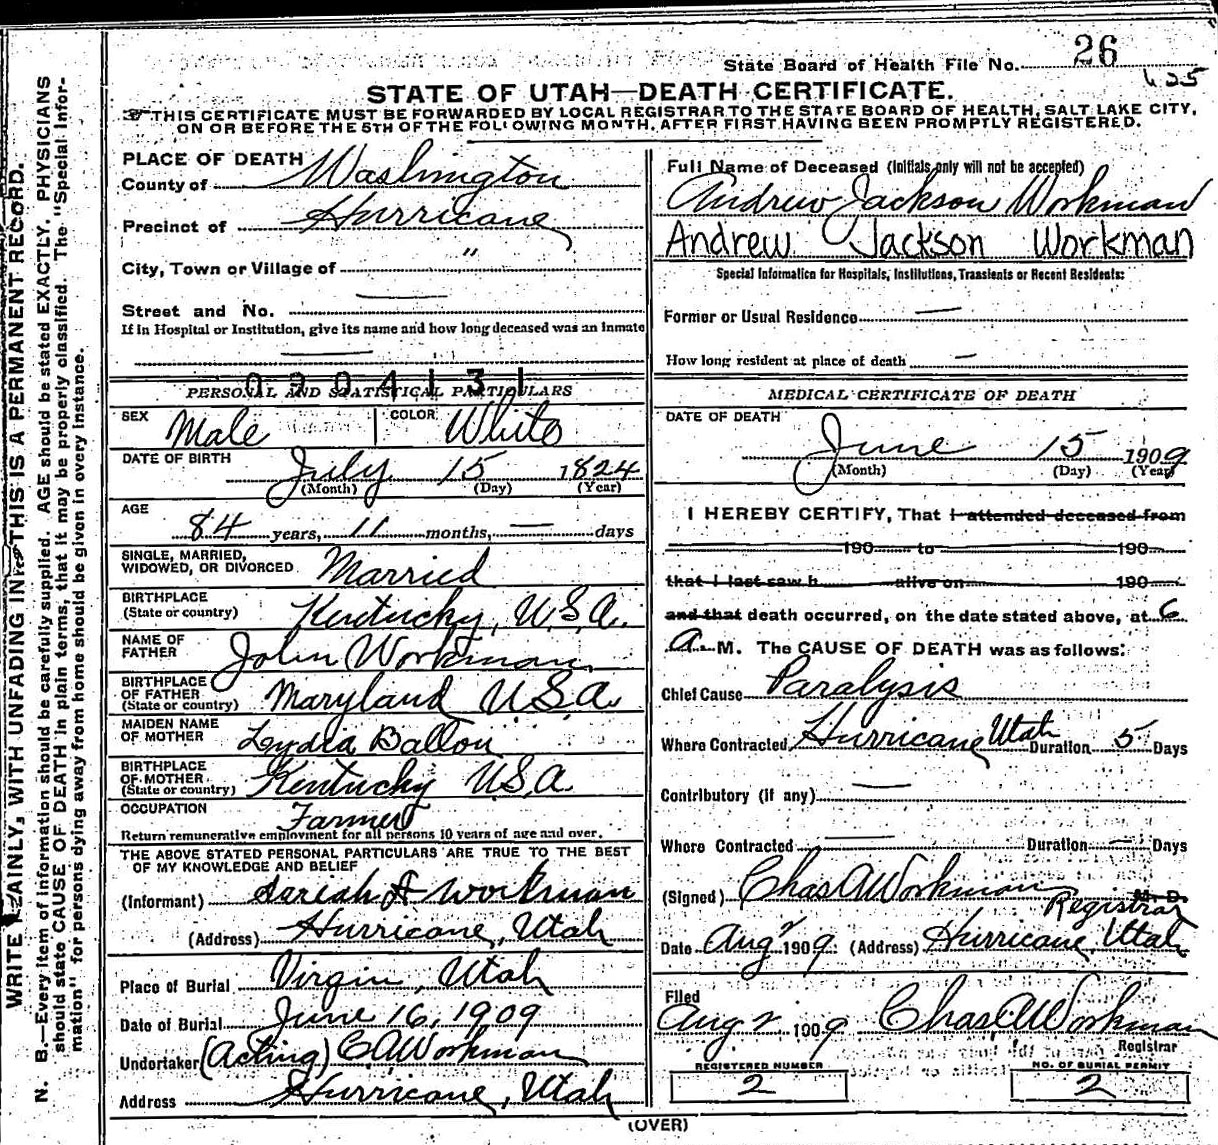 State Board of Health File No. 26
STATE OF UTAH—DEATH CERTIFICATE.
THIS CERTIFICATE MUST BE FORWARDED BY LOCAL REGISTRAR TO THE STATE BOARD OF HEALTH, SALT LAKE CITY,
ON OR BEFORE THE 5TH OF THE FOLLOWING MONTH, AFTER FIRST HAVING BEEN PROMPTLY REGISTERED.
PLACE OF DEATH
County of Washington
Precinct of Hurricane
City, Town or Village of "
Street and No. —
If in Hospital or Institution, give its name and how long deceased was an inmate
—
0204131
PERSONAL AND STATISTICAL PARTICULARS
SEX Male COLOR White
DATE OF BIRTH July 15 1824
(Month) (Day) (Year)
AGE
84 years, 11 months, — days
SINGLE, MARRIED,
WIDOWED, OR DIVORCED Married
BIRTHPLACE
(State or country) Kentucky, U.S.A.
NAME OF
FATHER John Workman
BIRTHPLACE
OF FATHER
(State or country) Maryland U.S.A.
MAIDEN NAME
OF MOTHER Lydia Ballou
BIRTHPLACE
OF MOTHER
(State or country) Kentucky U.S.A.
OCCUPATION Farmer
Return remunerative employment for all persons 10 years of age and over.
THE ABOVE STATED PERSONAL PARTICULARS ARE TRUE TO THE BEST
OF MY KNOWLEDGE AND BELIEF
(Informant) Workman
(Address) Hurricane, Utah
Place of Burial Virgin, Utah
Date of Burial June 16, 1909
Undertaker (Acting) C A Workman
Address Hurricane, Utah
Full Name of Deceased (Initials only will not be accepted)
Andrew Jackson Workman
Andrew Jackson Workman
Special Information for Hospitals, Institutions, Transients or Recent Residents:
Former or Usual Residence —
How long resident at place of death —
MEDICAL CERTIFICATE OF DEATH
DATE OF DEATH
June 15 1909
(Month) (Day) (Year)
I HEREBY CERTIFY, That I attended deceased from
190 to 190
that I last saw h alive on 190
and that death occurred, on the date stated above, at 6
A M. The CAUSE OF DEATH was as follows:
Chief Cause Paralysis
Where Contracted Hurricane Utah Duration 5 Days
Contributory (if any) —
Where Contracted — Duration — Days
(Signed) Chas A Workman M. D.
Registrar
Date Aug 2 1909 (Address) Hurricane, Utah
Filed
Aug 2 1909 Chas A Workman
Registrar
REGISTERED NUMBER
2
NO. OF BURIAL PERMIT
2
(OVER)
WRITE PLAINLY, WITH UNFADING INK—THIS IS A PERMANENT RECORD.
N. B.—Every item of information should be carefully supplied. AGE should be stated EXACTLY. PHYSICIANS
should state CAUSE OF DEATH in plain terms, that it may be properly classified. The "Special Infor-
mation" for persons dying away from home should be given in every instance.